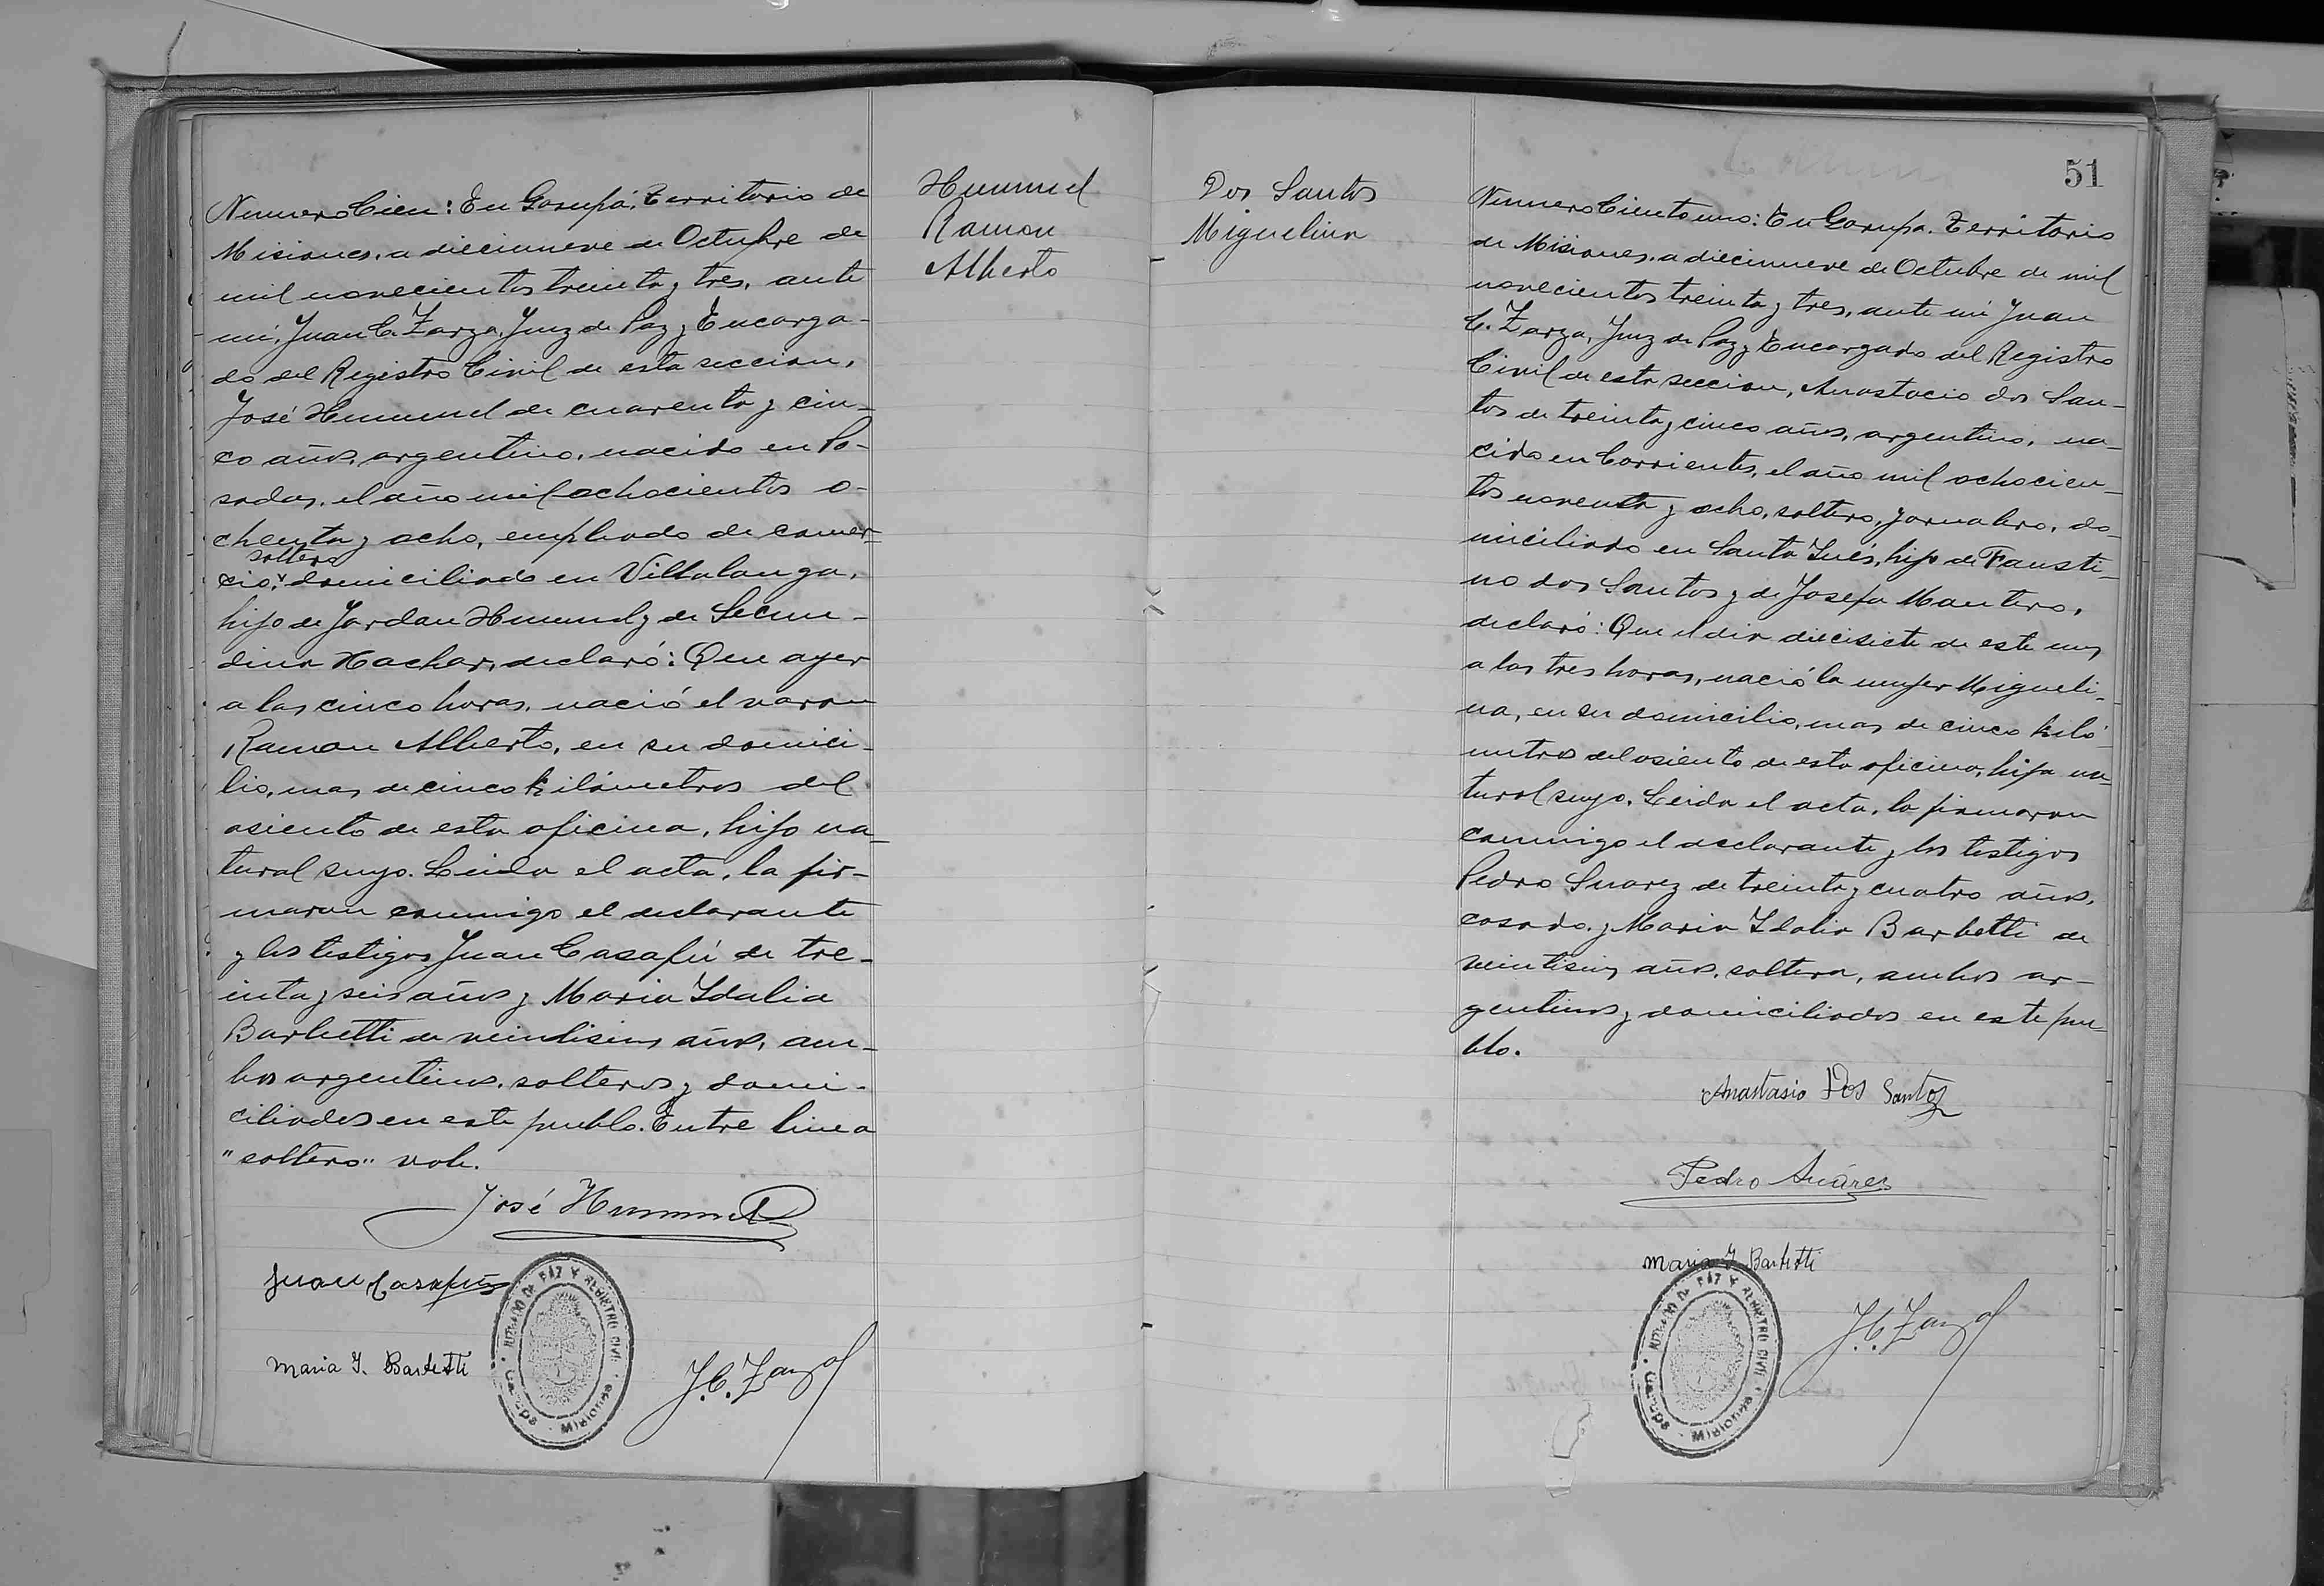 Numero Cien: En Garupá, Territorio de
Misiones, a diecinueve de Octubre de
mil novecientos treinta y tres, ante
mi, Juan C. Zarza, Juez de Paz y Encarga-
do del Registro Civil de esta seccion,
José Hummel de cuarenta y cin-
co años, argentino, nacido en Po-
sadas, el año mil ochocientos o-
chenta y ocho, empleado de comer-
soltero
cio, domiciliado en Villalonga,
hijo de Jordan Hummel y de Secun-
dina Hachar, declaró: Que ayer
a las cinco horas, nació el varon
Ramon Alberto, en su domici-
lio, mas de cinco kilómetros del
asiento de esta oficina, hijo na-
tural suyo. Leida el acta, la fir-
maron conmigo el declarante
y los testigos Juan Casafús de tre-
inta y seis años y Maria Idalia
Barbetti de veintiseis años, am-
bos argentinos, solteros y domi-
ciliados en este pueblo. Entre linea
"soltero" vale.
José Hummel
Juan Casafús
Maria I. Barbetti
J.C. Zarza
JUZGADO DE PAZ Y REGISTRO CIVIL
Garupá - Misiones
Hummel
Ramon
Alberto
Dos Santos
Miguelina
51
Numero Ciento uno: En Garupa, Territorio
de Misiones, a diecinueve de Octubre de mil
novecientos treinta y tres, ante mi Juan
C. Zarza, Juez de Paz y Encargado del Registro
Civil de esta seccion, Anastacio dos San-
tos de treinta y cinco años, argentino, na-
cido en Corrientes, el año mil ochocien-
tos noventa y ocho, soltero, jornalero, do-
miciliado en Santa Inés, hijo de Fausti-
no dos Santos y de Josefa Mantero,
declaró: Que el dia diecisiete de este mes
a las tres horas, nació la mujer Migueli-
na, en su domicilio, mas de cinco kiló-
metros del asiento de esta oficina, hija na-
tural suyo. Leida el acta, la firmaron
conmigo el declarante y los testigos
Pedro Suarez de treinta y cuatro años,
casado, y Maria Idalia Barbetti de
veintiseis años, soltera, ambos ar-
gentinos y domiciliados en este pue-
blo.
Anastasio Dos Santos
Pedro Suárez
Maria I. Barbetti
J.C. Zarza
JUZGADO DE PAZ Y REGISTRO CIVIL
Garupá - Misiones